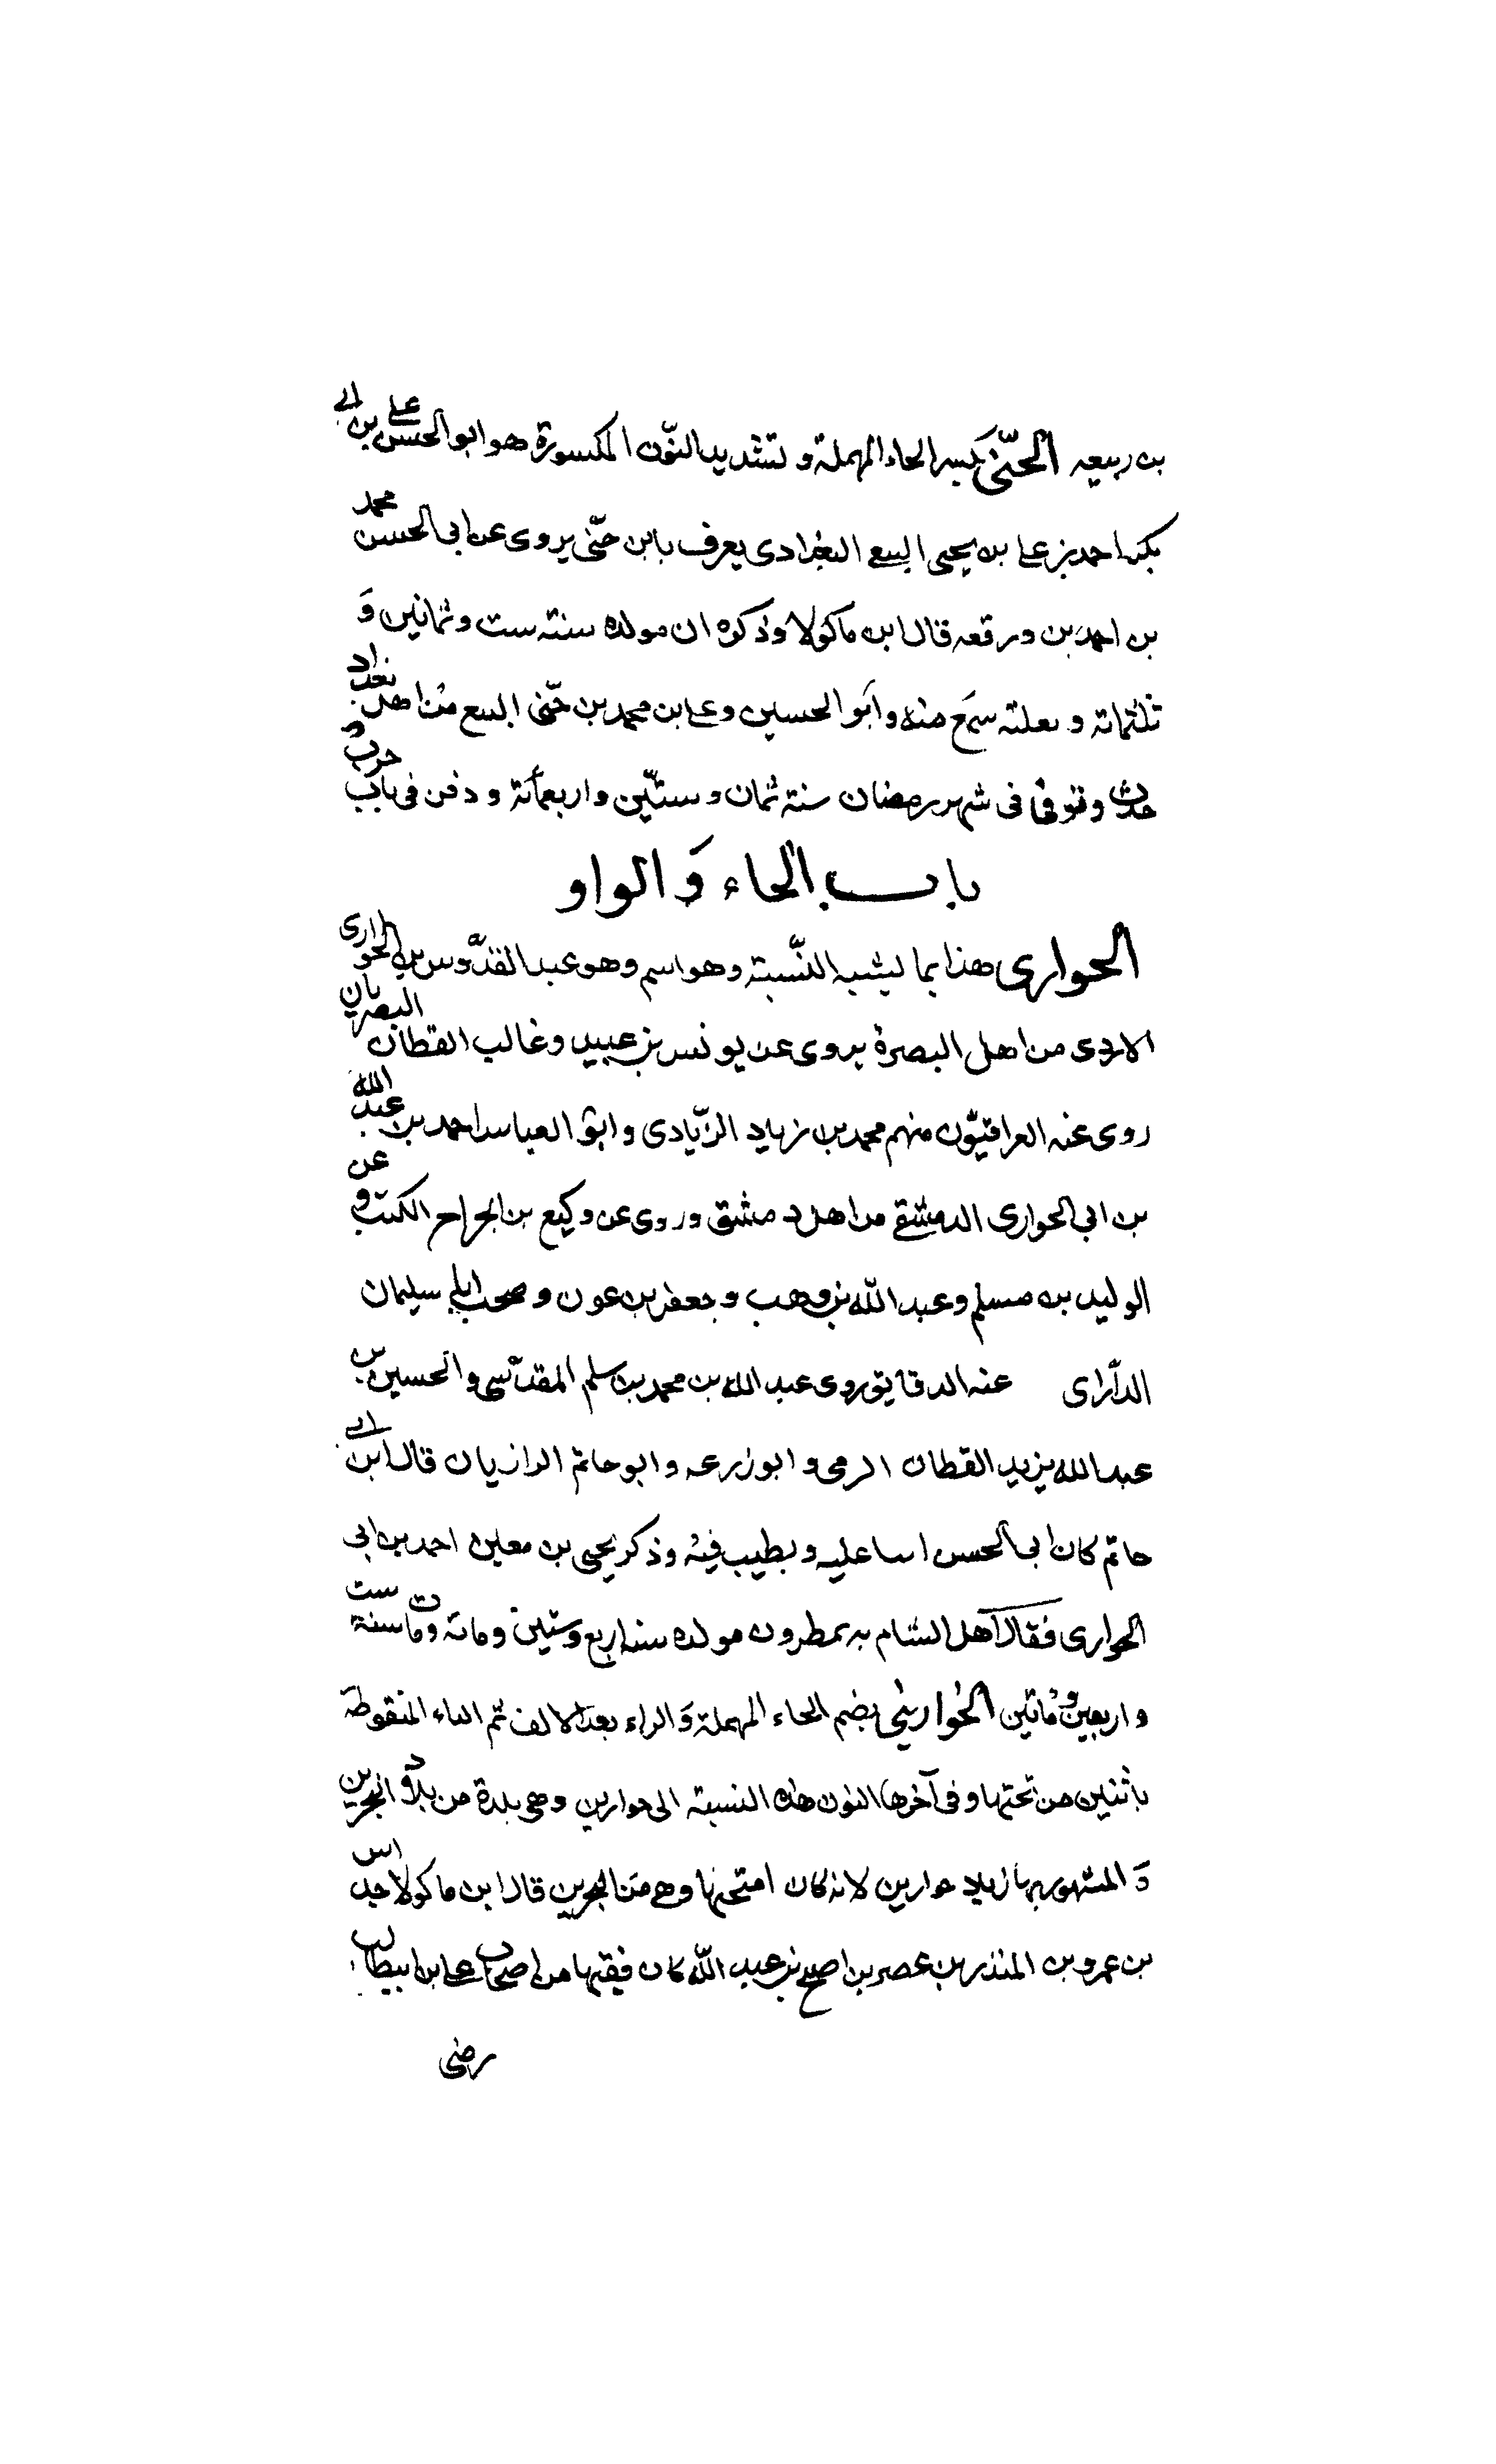 بن ربيعه الحنّي بكسر الحاء المهملة وتشديد النّون المكسورة هو ابو الحسن علي بن ابي
بكر احمد بن علي بن يحيى البيع البغدادى يعرف بابن حنّى يروى عن ابى الحسن محمد
بن احمد بن ورقعه قال ابن ماكولا وذكره ان مولده سنته ست وثمانين وَ
ثلثمائه سمع منه وأبو الحسين وعلى بن محمد بن حنّى البيع من اهل بغداد
حدث وتوفى فى شهر رمضان سنة ثمان وستّين واربعمأئة ودفن فى باب حرب
باب الحاء وَالواو
الحوارى هذا بما ليشبه النّسبته وهو اسم وهو عبد القدّوس بن الحوارى
الازدى من اهل البصرة يروى عن يونس بن عبيد وغالب القطان البصريان
روى عنه العراقيّون منهم محمد بن زياد الزّيادى وابو العباس احمد بن عبد الله
بن ابى الحوارى الدمشقى من اهل دمشق وروى عن وكيع بن الجراح الكتب وعن
الوليد بن مسلم وعبد اللّه بن وهب وجعفر بن عون وصحب ابا سليمان
الدّارانى عنه الدقايق وروى عبد الله بن محمد بن سلم المقدّسى والحسين بن
عبد الله يزيد القطان الرمى وابو زرعه وابو حاتم الرازيان قال ابن ابي
حاتم كان ابى الحسن اسا عليه وبطيب فيه وذكر يحيى بن معين احمد بن ابى
الحوارى فقال اهل الشام به يمطرون مولده سنه اربع وستين ومائه ومات سنة ست
واربعين ومائتين الحُواريني بضم الحاء المهملة وَالراء بعد الالف ثم الياء المنقوطة
باثنين من تحتها وفى آخرها النون هذه النسبته الى حوارين وهى بلدة من بلاد البحرين
وَ المشهور بها زياد حوارين لانه كان افتتحها وهى من البحرين قال ابن ماكولا
بن عمرو بن المنذر بن عصر بن اصبح بن عبد اللّه كان فقيها من اصحاب على بن ابيطالب
رضى